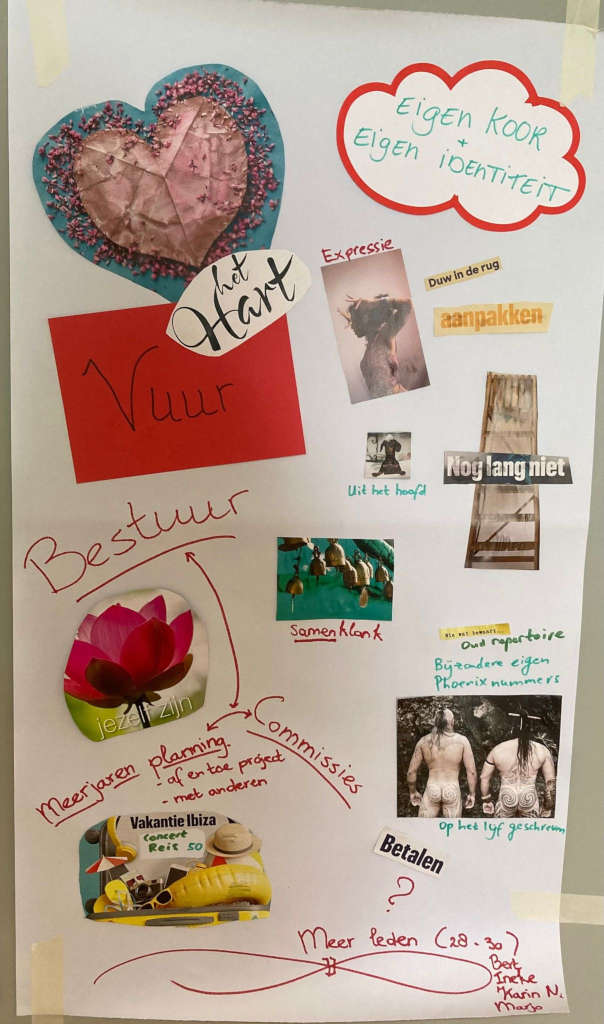 EIGEN KOOR
+
EIGEN IDENTITEIT
het
Hart
Vuur
Expressie
Duw in de rug
aanpakken
Nog lang niet
Uit het hoofd
Bestuur
Samenklank
jezelf zijn
Wie wat bewaart...
Oud repertoire
Bijzondere eigen
Phoenix nummers
Op het lijf geschreven
Commissies
Meerjaren planning
- af en toe project
- met anderen
Vakantie Ibiza
Concert
Reis 50
Betalen
?
Meer leden (28-30)
Bert
Ineke
Karin N.
Marjo